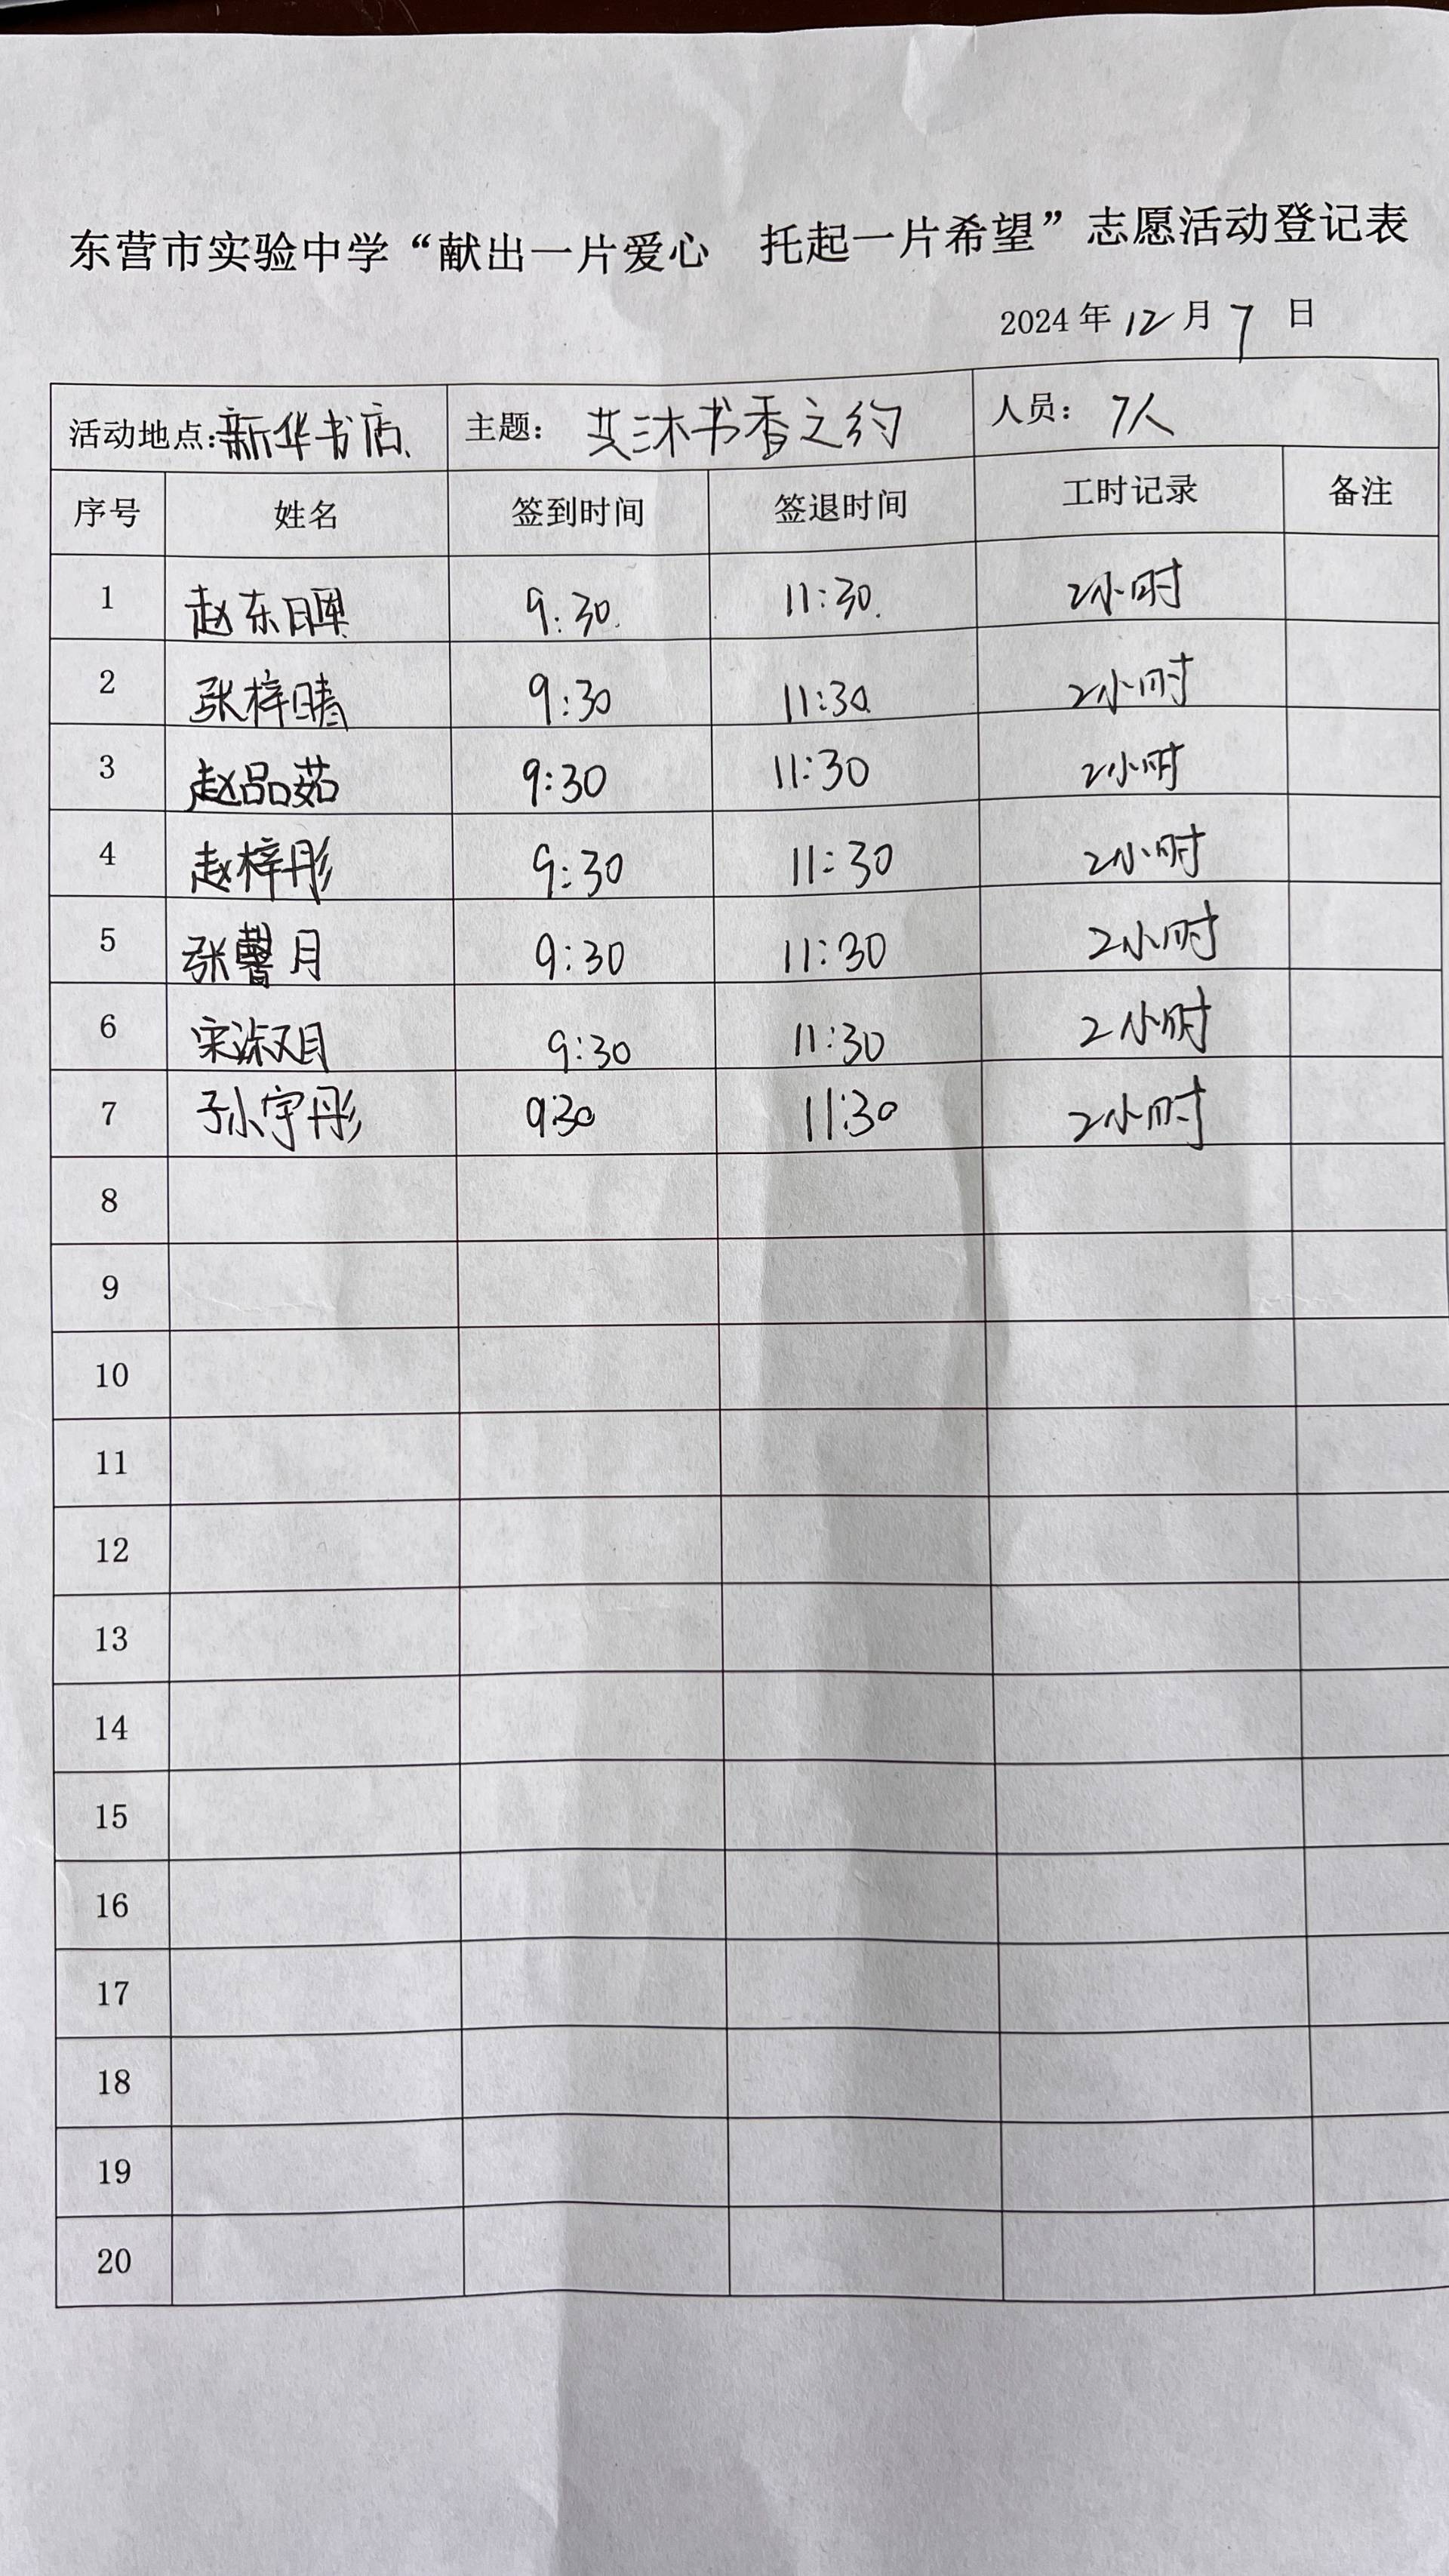 东营市实验中学“献出一片爱心 托起一片希望”志愿活动登记表
2024年12月7日
活动地点:新华书店 主题: 共沐书香之约 人员: 7人
序号 姓名 签到时间 签退时间 工时记录 备注
1 赵东暉 9:30 11:30 2小时
2 张梓晴 9:30 11:30 2小时
3 赵品茹 9:30 11:30 2小时
4 赵梓彤 9:30 11:30 2小时
5 张馨月 9:30 11:30 2小时
6 宋 9:30 11:30 2小时
7 孙宇彤 9:30 11:30 2小时
8
9
10
11
12
13
14
15
16
17
18
19
20